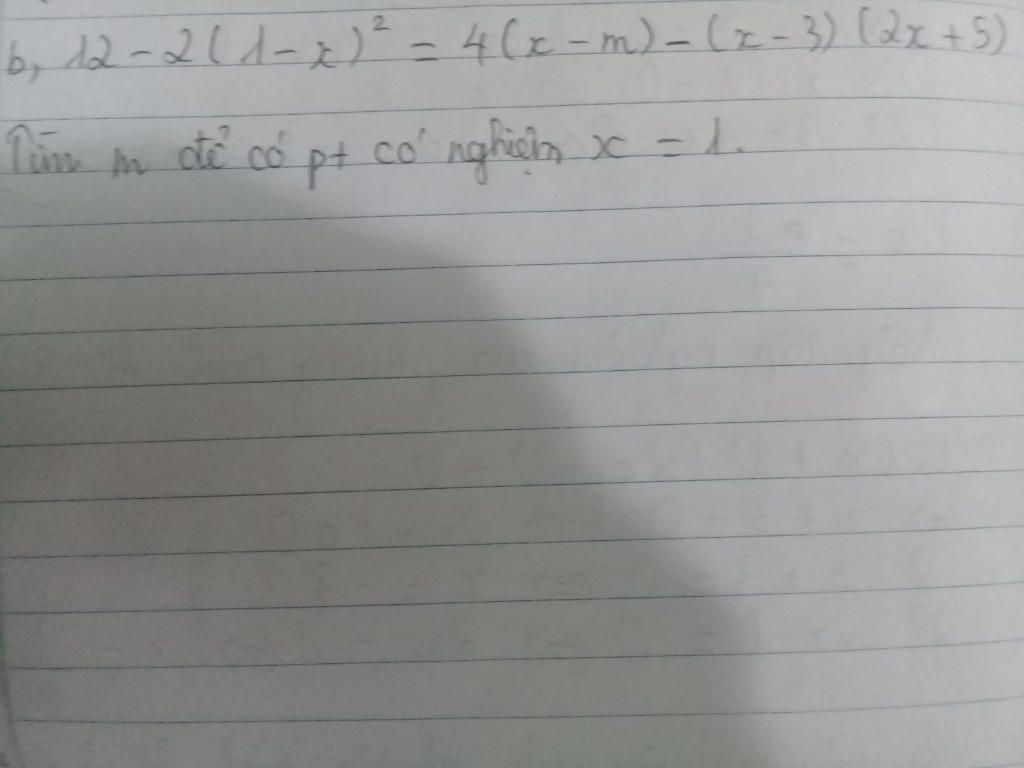 b, 12 - 2(1-x)² = 4(x-m) - (x-3)(2x+5)
Tìm m để có pt có nghiệm x = 1.